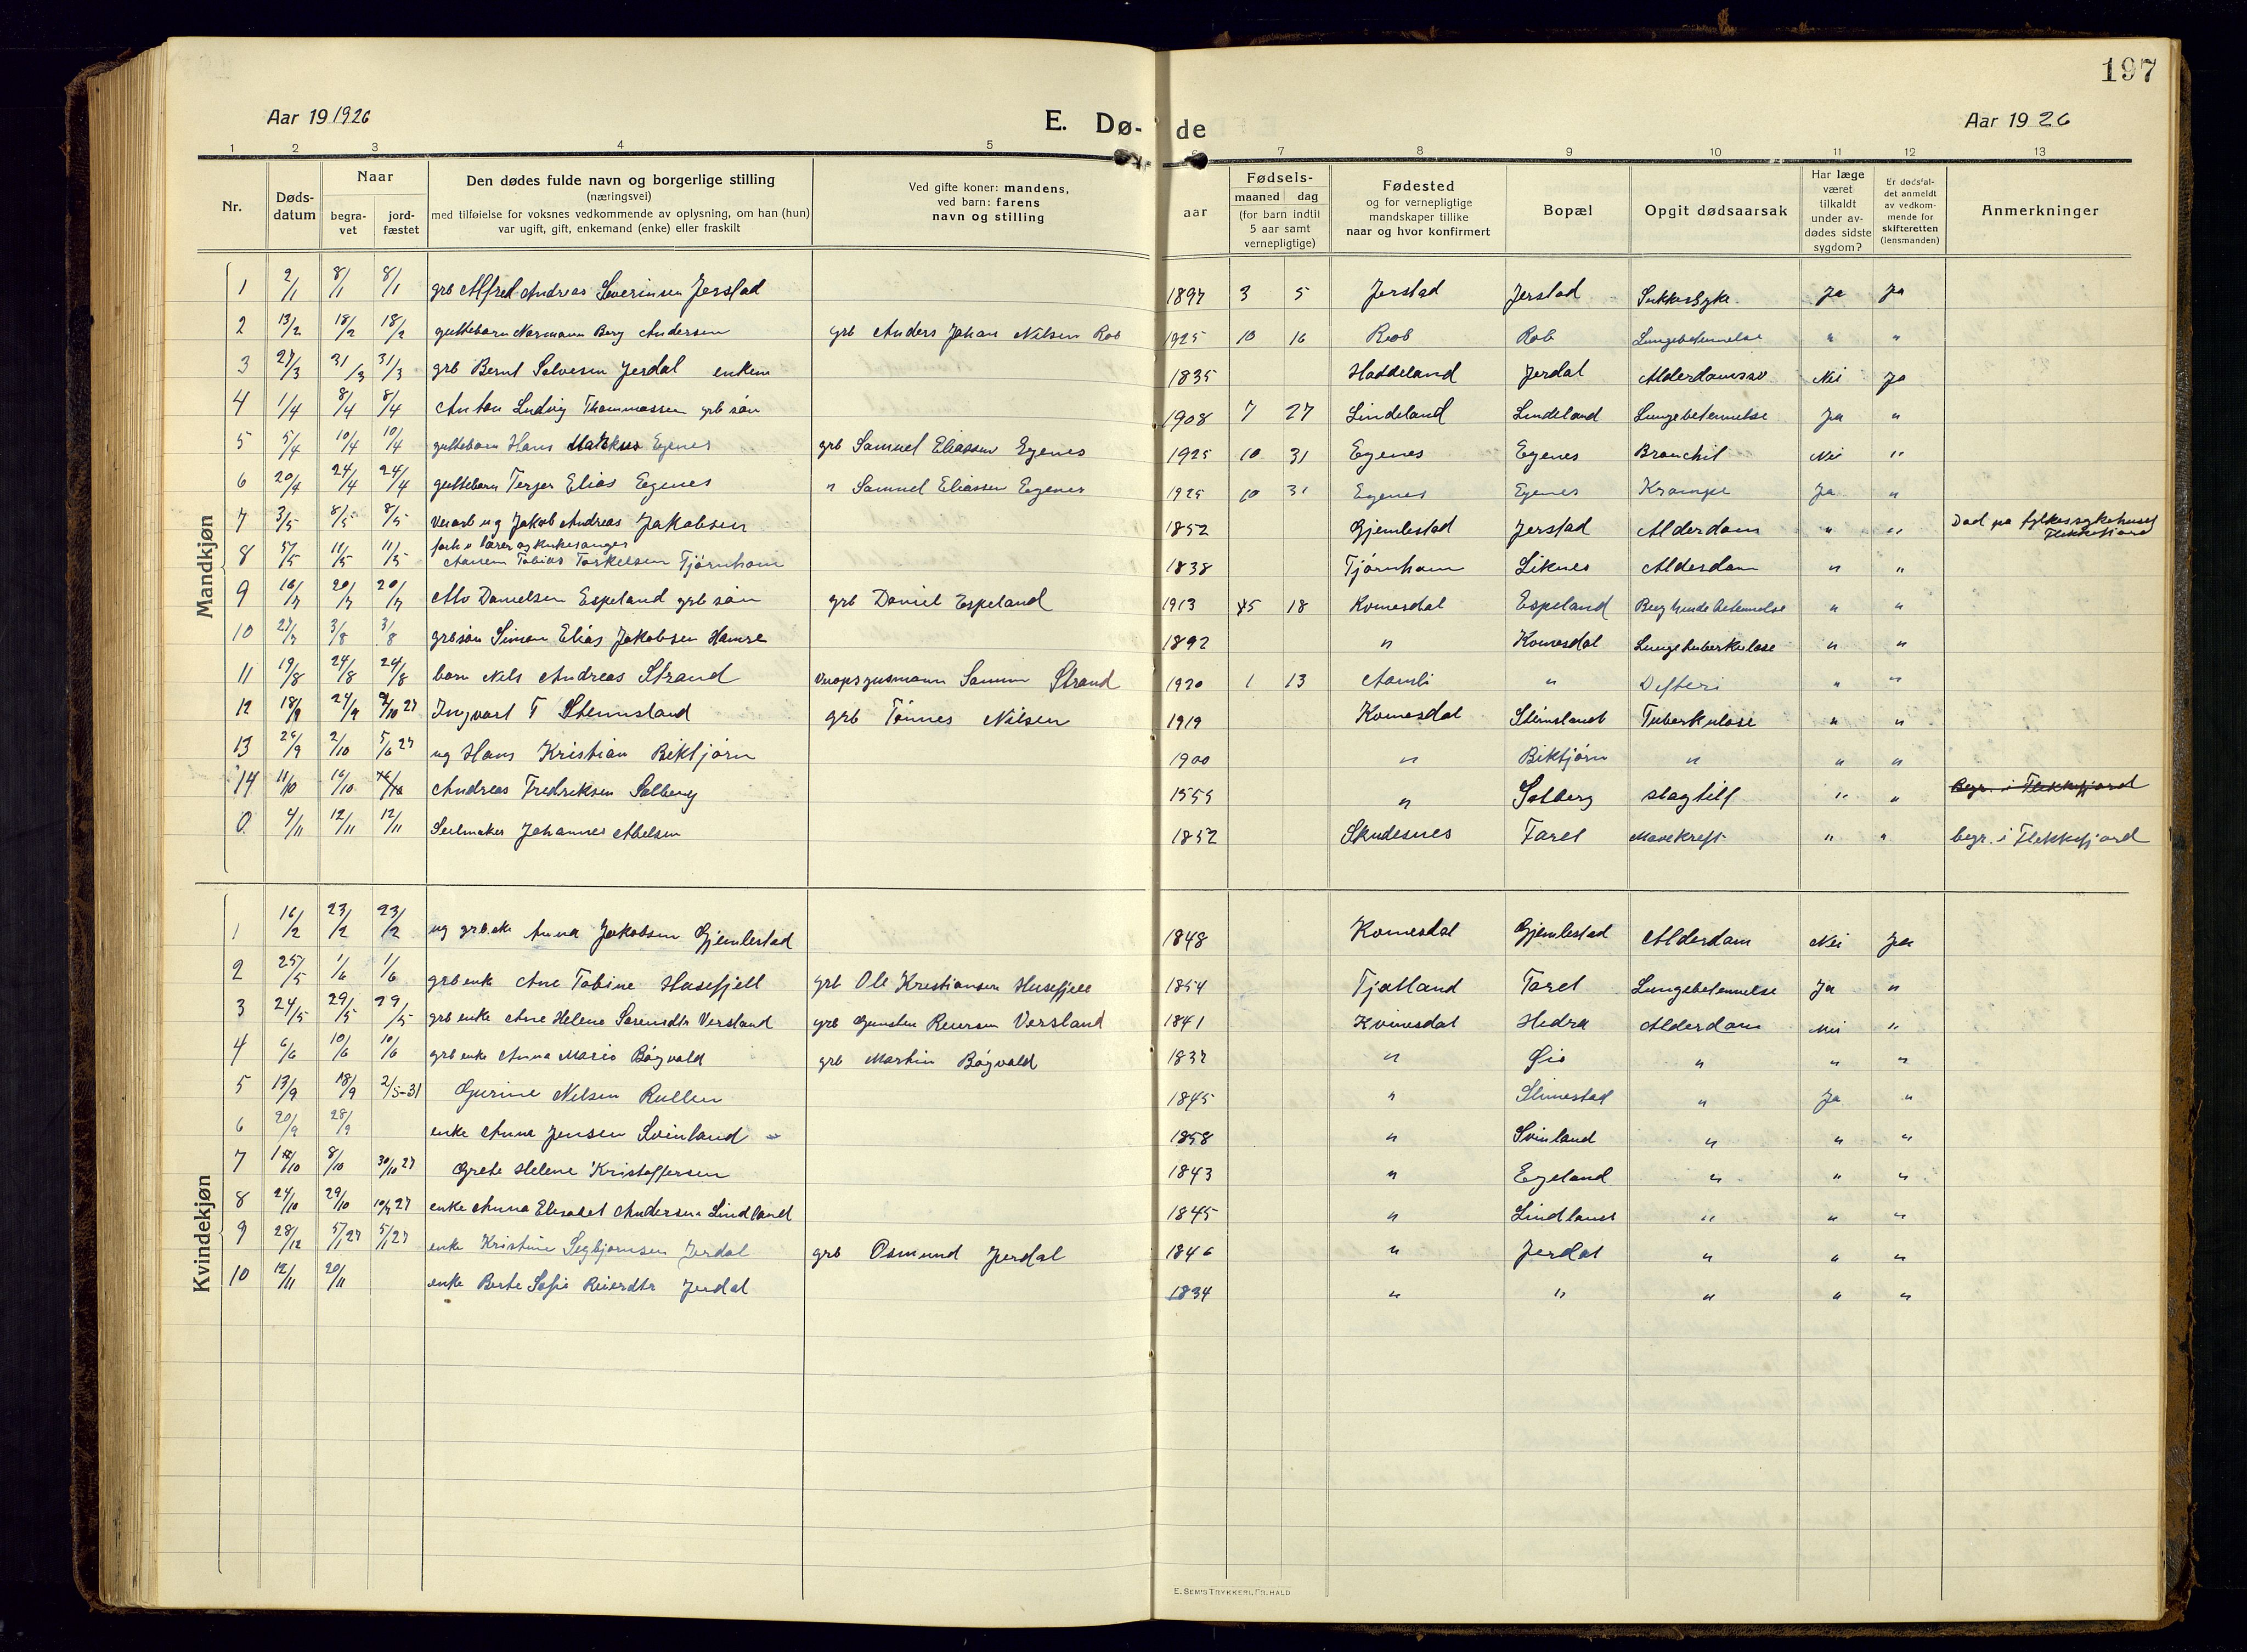 197
Aar 19 1926
E. Dø-
de
Aar 19 26
1 2 3 4 5 6 7 8 9 10 11 12 13
Nr.
Døds-
datum
Naar
begra-
vet
jord-
fæstet
Den dødes fulde navn og borgerlige stilling
(næringsvei)
med tilføielse for voksnes vedkommende av oplysning, om han (hun)
var ugift, gift, enkemand (enke) eller fraskilt
Ved gifte koner: mandens,
ved barn: farens
navn og stilling
aar
Fødsels-
maaned dag
(for barn indtil
5 aar samt
vernepligtige)
Fødested
og for vernepligtige
mandskaper tillike
naar og hvor konfirmert
Bopæl
Opgit dødsaarsak
Har læge
været
tilkaldt
under av-
dødes sidste
sygdom?
Er dødsfal-
det anmeldt
av vedkom-
mende for
skifteretten
(lensmanden)
Anmerkninger
Mandkjøn
1 2/1 8/1 8/1 grb Alfred Andreas Severinsen Jerstad 1897 3 5 Jerstad Jerstad Sukkersyke Ja Ja
2 13/2 18/2 18/2 guttebarn Normann Berg Andersen grb Anders Johan Nilsen Rob 1925 10 16 Rob Rob Lungebetennelse " "
3 27/3 31/3 31/3 grb Bernt Salvesen Jerdal enkem 1835 Haddeland Jerdal Alderdomssv Nei Ja
4 1/4 8/4 8/4 Anton Ludvig Thommassen grb søn 1908 7 27 Lindeland Lindeland Lungebetennelse Ja "
5 5/4 10/4 10/4 guttebarn Hans Markus Egenes grb Samuel Eliassen Egenes 1925 10 31 Egenes Egenes Bronchit Nei "
6 20/4 24/4 24/4 guttebarn Terjer Elias Egenes " Samuel Eliassen Egenes 1925 10 31 Egenes Egenes Krampe Ja "
7 3/5 8/5 8/5 ug Jakob Andreas Jakobsen 1852 Gjemlestad Jerstad Alderdom " " Død på fylkessykehuset
Flekkefjord
8 5/5 11/5 11/5 forh v lærer og kirkesanger
Aanen Tobias Torkelsen Tjørnhom 1838 Tjørnhom Liknes Alderdom " "
9 16/7 20/7 20/7 Alv Danielsen Espeland grb søn grb Daniel Espeland 1913 5 18 Kvinesdal Espeland Bughindebetennelse " "
10 27/7 3/8 3/8 grb søn Simon Elias Jakobsen Hamre 1892 " Kvinesdal Lungetuberkulose " "
11 19/8 24/8 24/8 barn Nils Andreas Strand Strand 1920 1 13 Aamli " Difteri " "
12 18/9 24/9 27 Ingvart T Stemnsland grb Tønnes Nilsen 1919 Kvinesdal Stemsland Tuberkulose " "
13 26/9 2/10 5/6 27 ug Hans Kristian Biktjørn 1900 " Biktjørn " " "
14 11/10 16/10 Andreas Fredriksen Solberg 1855 " Solberg slagtilf " " Begr. i Flekkefjord
0. 4/11 12/11 12/11 Seilmaker Johannes Abelsen 1852 Skudesnes Faret Mavekreft " " begr. i Flekkefjord
Kvindekjøn
1 16/2 23/2 23/2 ug Anna Jakobsen Gjemlestad 1848 Kvinesdal Gjemlestad Alderdom Nei Ja
2 25/5 1/6 1/6 grb enke Ane Tobine Husefjell grb Ole Kristiansen Husefjell 1854 Tjotland Faret Lungebetennelse Ja "
3 24/5 29/5 29/5 grb enke Ane Helene Sørensdtr Versland grb Gunsten Reiersen Versland 1841 Kvinesdal Hidra Alderdom Nei "
4 6/6 10/6 10/6 grb enke Anna Marie Bøgvald grb Martin Bøgvald 1837 " Øie " " "
5 13/9 18/9 2/5-31 Gurine Nilsen Rullen 1845 " Slimestad " Ja "
6 20/9 28/9 enke Anna Jensen Svinland 1858 " Svinland " " "
7 8/10 30/10 27 Grete Helene Kristoffersen 1843 " Egeland " " "
8 24/10 29/10 27 enke Anna Elisabet Andersen Lindland 1845 " Lindland " " "
9 28/12 5/1 27 5/1 27 enke Kristine Segbjørnsen Jerdal grb Osmund Jerdal 1846 " Jerdal " " "
10 12/11 20/11 enke Berte Sofie Reierdtr Jerdal 1834 " " " " "
E. SEM'S TRYKKERI, FR.HALD